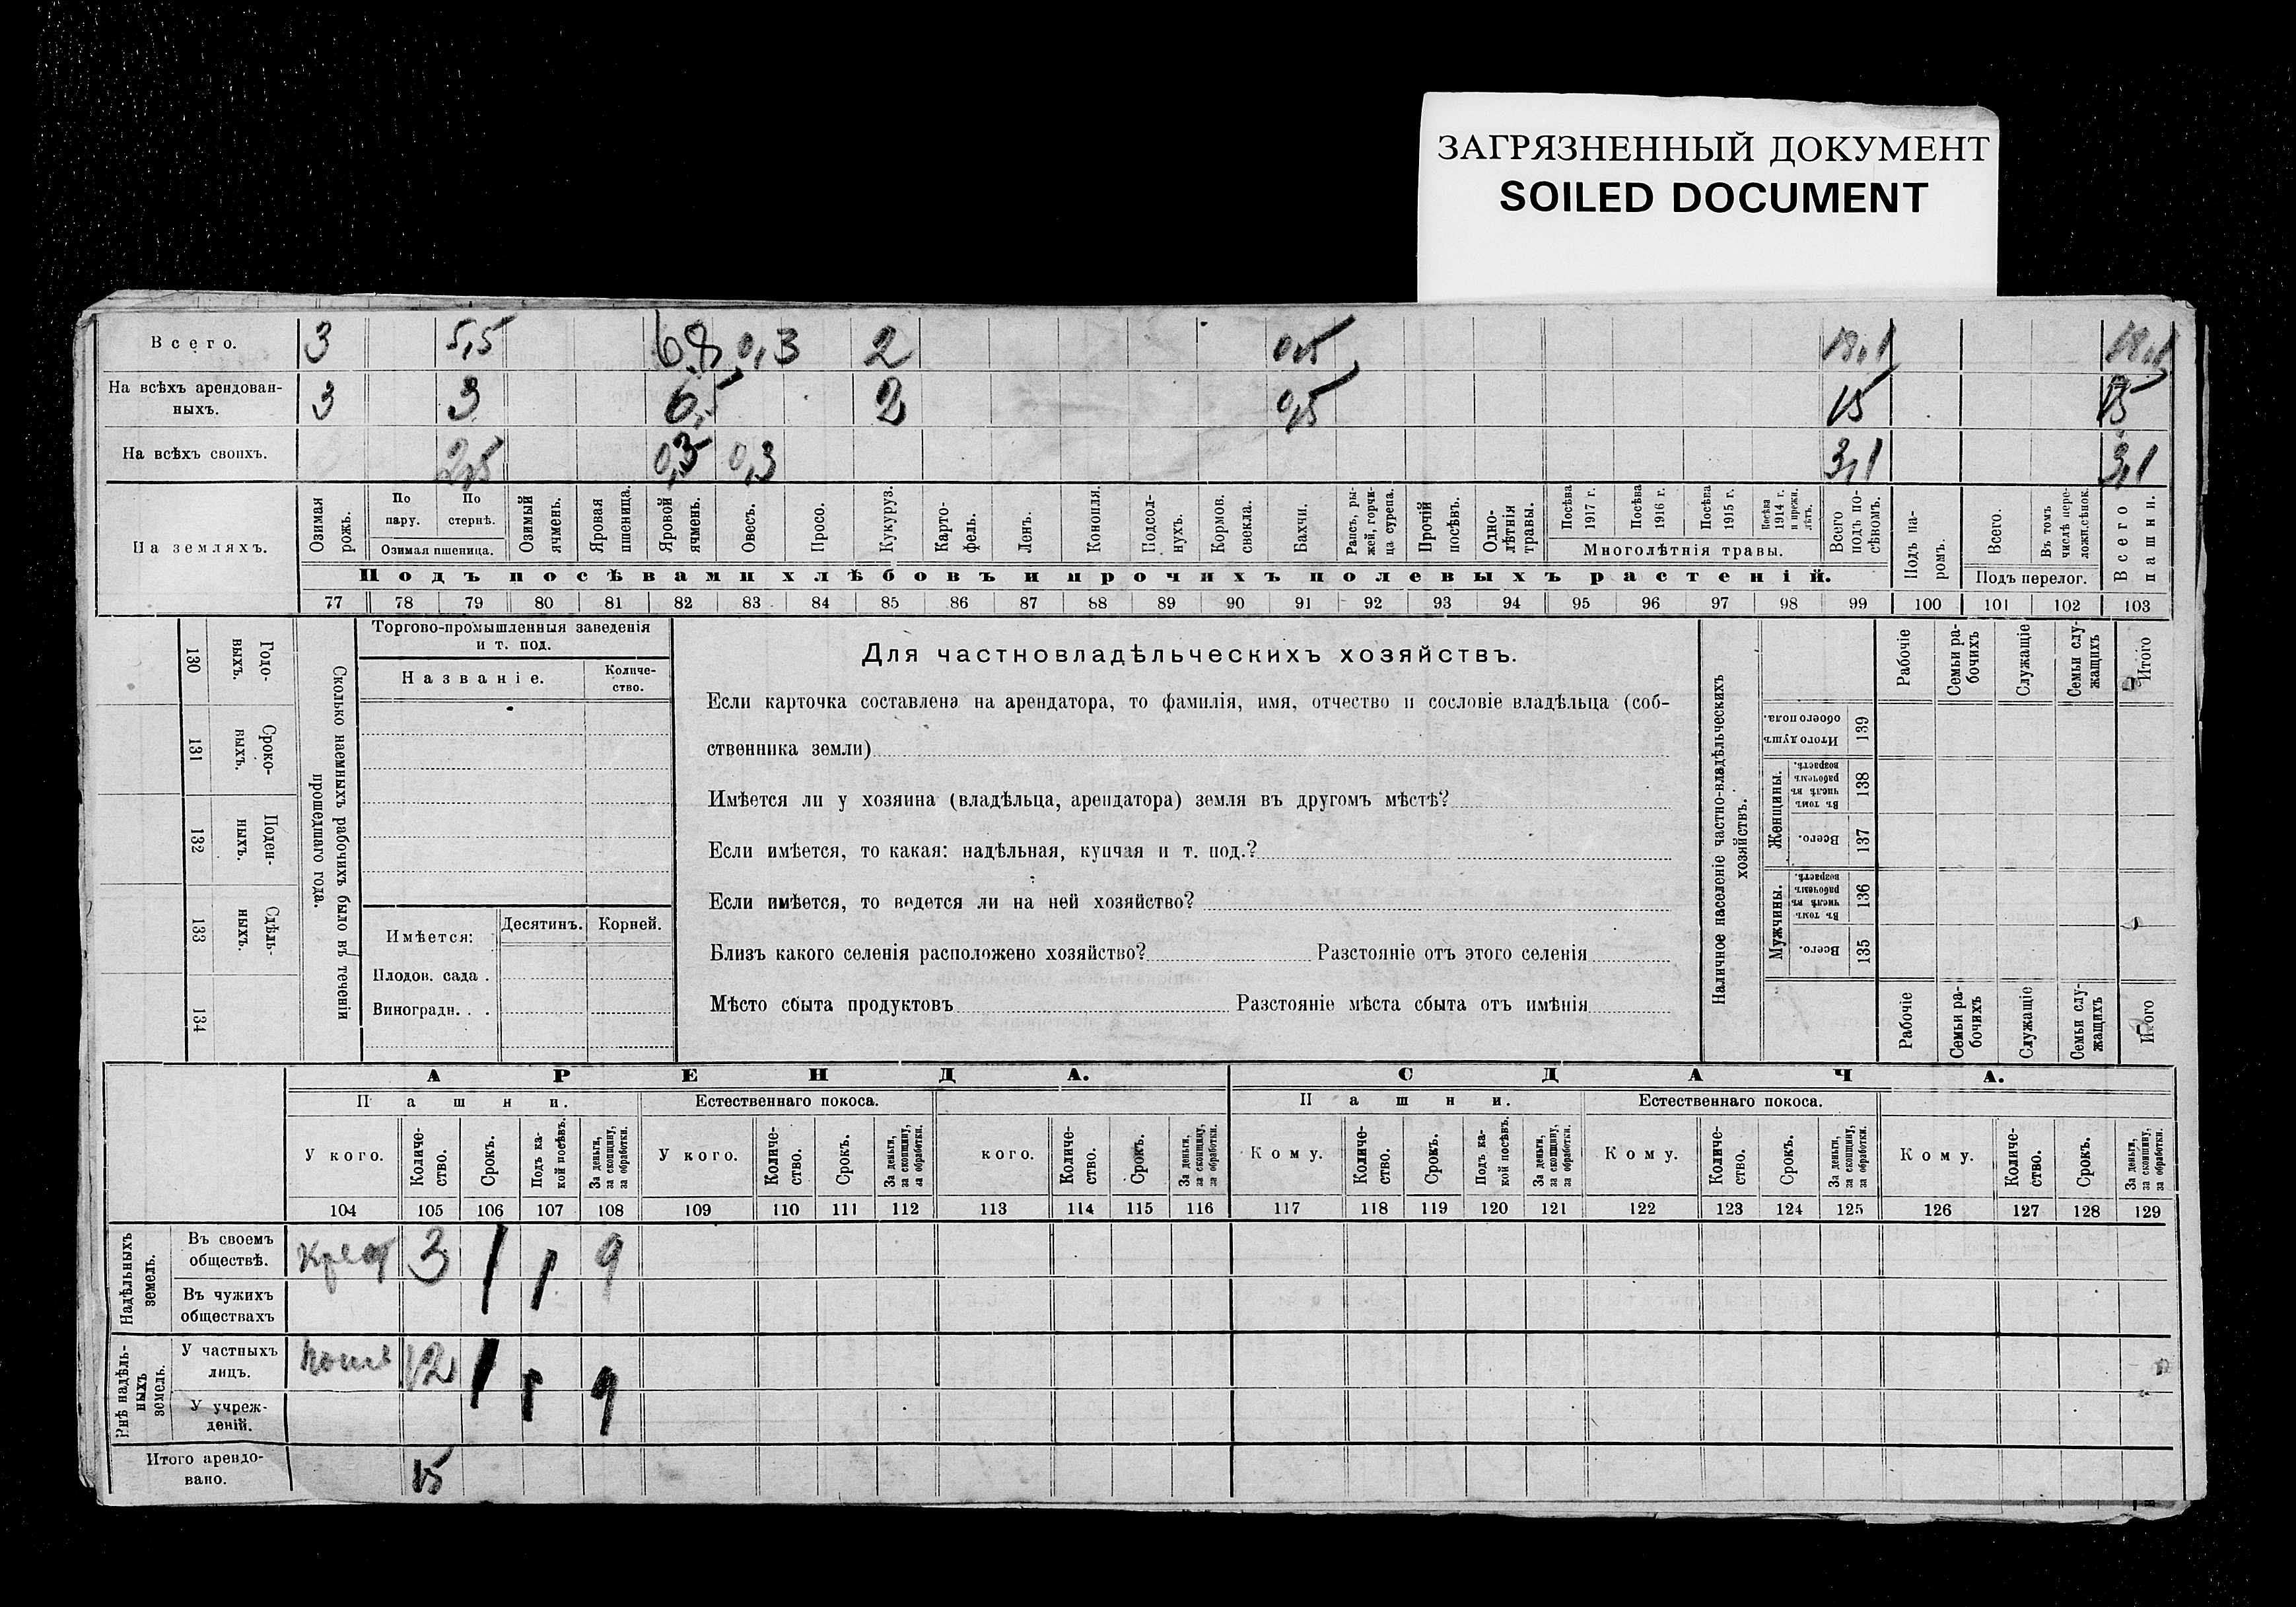 ЗАГРЯЗНЕННЫЙ ДОКУМЕНТ
SOILED DOCUMENT
Всего. 3 5,5 6,8 0,3 2 0,5 18,1 18,1
На всѣхъ арендованныхъ. 3 3 6,5 2 0,5 15 15
На всѣхъ своихъ. 2,5 0,3 0,3 3,1 3,1
На земляхъ.
Озимая рожь.
По пару.
По стернѣ.
Озимая пшеница.
Озимый ячмень.
Яровая пшеница.
Яровой ячмень.
Овесъ.
Просо.
Кукуруз.
Карто-фель.
Ленъ.
Конопля.
Подсол-нухъ.
Кормов. свекла.
Бахчи.
Рапсъ, ры-жей, горчи-ца сурепа.
Прочій посѣвъ.
Одно-лѣтнія травы.
Посѣва 1917 г.
Посѣва 1916 г.
Посѣва 1915 г.
Посѣва 1914 г. и прежн. лѣтъ.
Многолѣтнія травы.
Всего подъ по-сѣвомъ.
Подъ па-ромъ.
Всего.
Въ томъ числѣ пере-ложн.сѣнок.
Подъ перелог.
Всего пашни.
Подъ посѣвами хлѣбовъ и прочихъ полевыхъ растеній.
77 78 79 80 81 82 83 84 85 86 87 88 89 90 91 92 93 94 95 96 97 98 99 100 101 102 103
130 Годо-выхъ.
131 Сроко-выхъ.
132 Поден-ныхъ.
133 Сдѣль-ныхъ.
134
Сколько наемныхъ рабочихъ было въ теченіи прошедшаго года.
Торгово-промышленныя заведенія
и т. под.
Названіе. Количе-ство.
Имѣется: Десятинъ. Корней.
Плодов. сада .
Виноградн. . .
Для частновладѣльческихъ хозяйствъ.
Если карточка составлена на арендатора, то фамилія, имя, отчество и сословіе владѣльца (соб-
ственника земли)
Имѣется ли у хозяина (владѣльца, арендатора) земля въ другомъ мѣстѣ?
Если имѣется, то какая: надѣльная, купчая и т. под.?
Если имѣется, то ведется ли на ней хозяйство?
Близъ какого селенія расположено хозяйство? Разстояніе отъ этого селенія
Мѣсто сбыта продуктовъ Разстояніе мѣста сбыта отъ имѣнія
Наличное населеніе частно-владѣльческихъ хозяйствъ.
Рабочіе
Семьи ра-бочихъ
Служащіе
Семьи слу-жащихъ
Итого
Итого душъ обоего пола. 139
Женщины.
Въ томъ числѣ въ рабочемъ возрастѣ. 138
Всего. 137
Мужчины.
Въ томъ числѣ въ рабочемъ возрастѣ. 136
Всего. 135
Рабочіе
Семьи ра-бочихъ
Служащіе
Семьи слу-жащихъ
Итого
АРЕНДА. СДАЧА.
Пашни. Естественнаго покоса. Пашни. Естественнаго покоса.
У кого. Количе-ство. Срокъ. Подъ ка-кой посѣвъ. За деньги, за скопщину, за обработки. У кого. Количе-ство. Срокъ. За деньги, за скопщину, за обработки. кого. Количе-ство. Срокъ. За деньги, за скопщину, за обработки. Кому. Количе-ство. Срокъ. Подъ ка-кой посѣвъ. За деньги, за скопщину, за обработки. Кому. Количе-ство. Срокъ. За деньги, за скопщину, за обработки. Кому. Количе-ство. Срокъ. За деньги, за скопщину, за обработки.
104 105 106 107 108 109 110 111 112 113 114 115 116 117 118 119 120 121 122 123 124 125 126 127 128 129
Надѣльныхъ земель.
Въ своемъ обществѣ. 3
Въ чужихъ обществахъ
Внѣ надѣль-ныхъ земель.
У частныхъ лицъ. 12
У учреж-деній.
Итого арендо-вано. 15